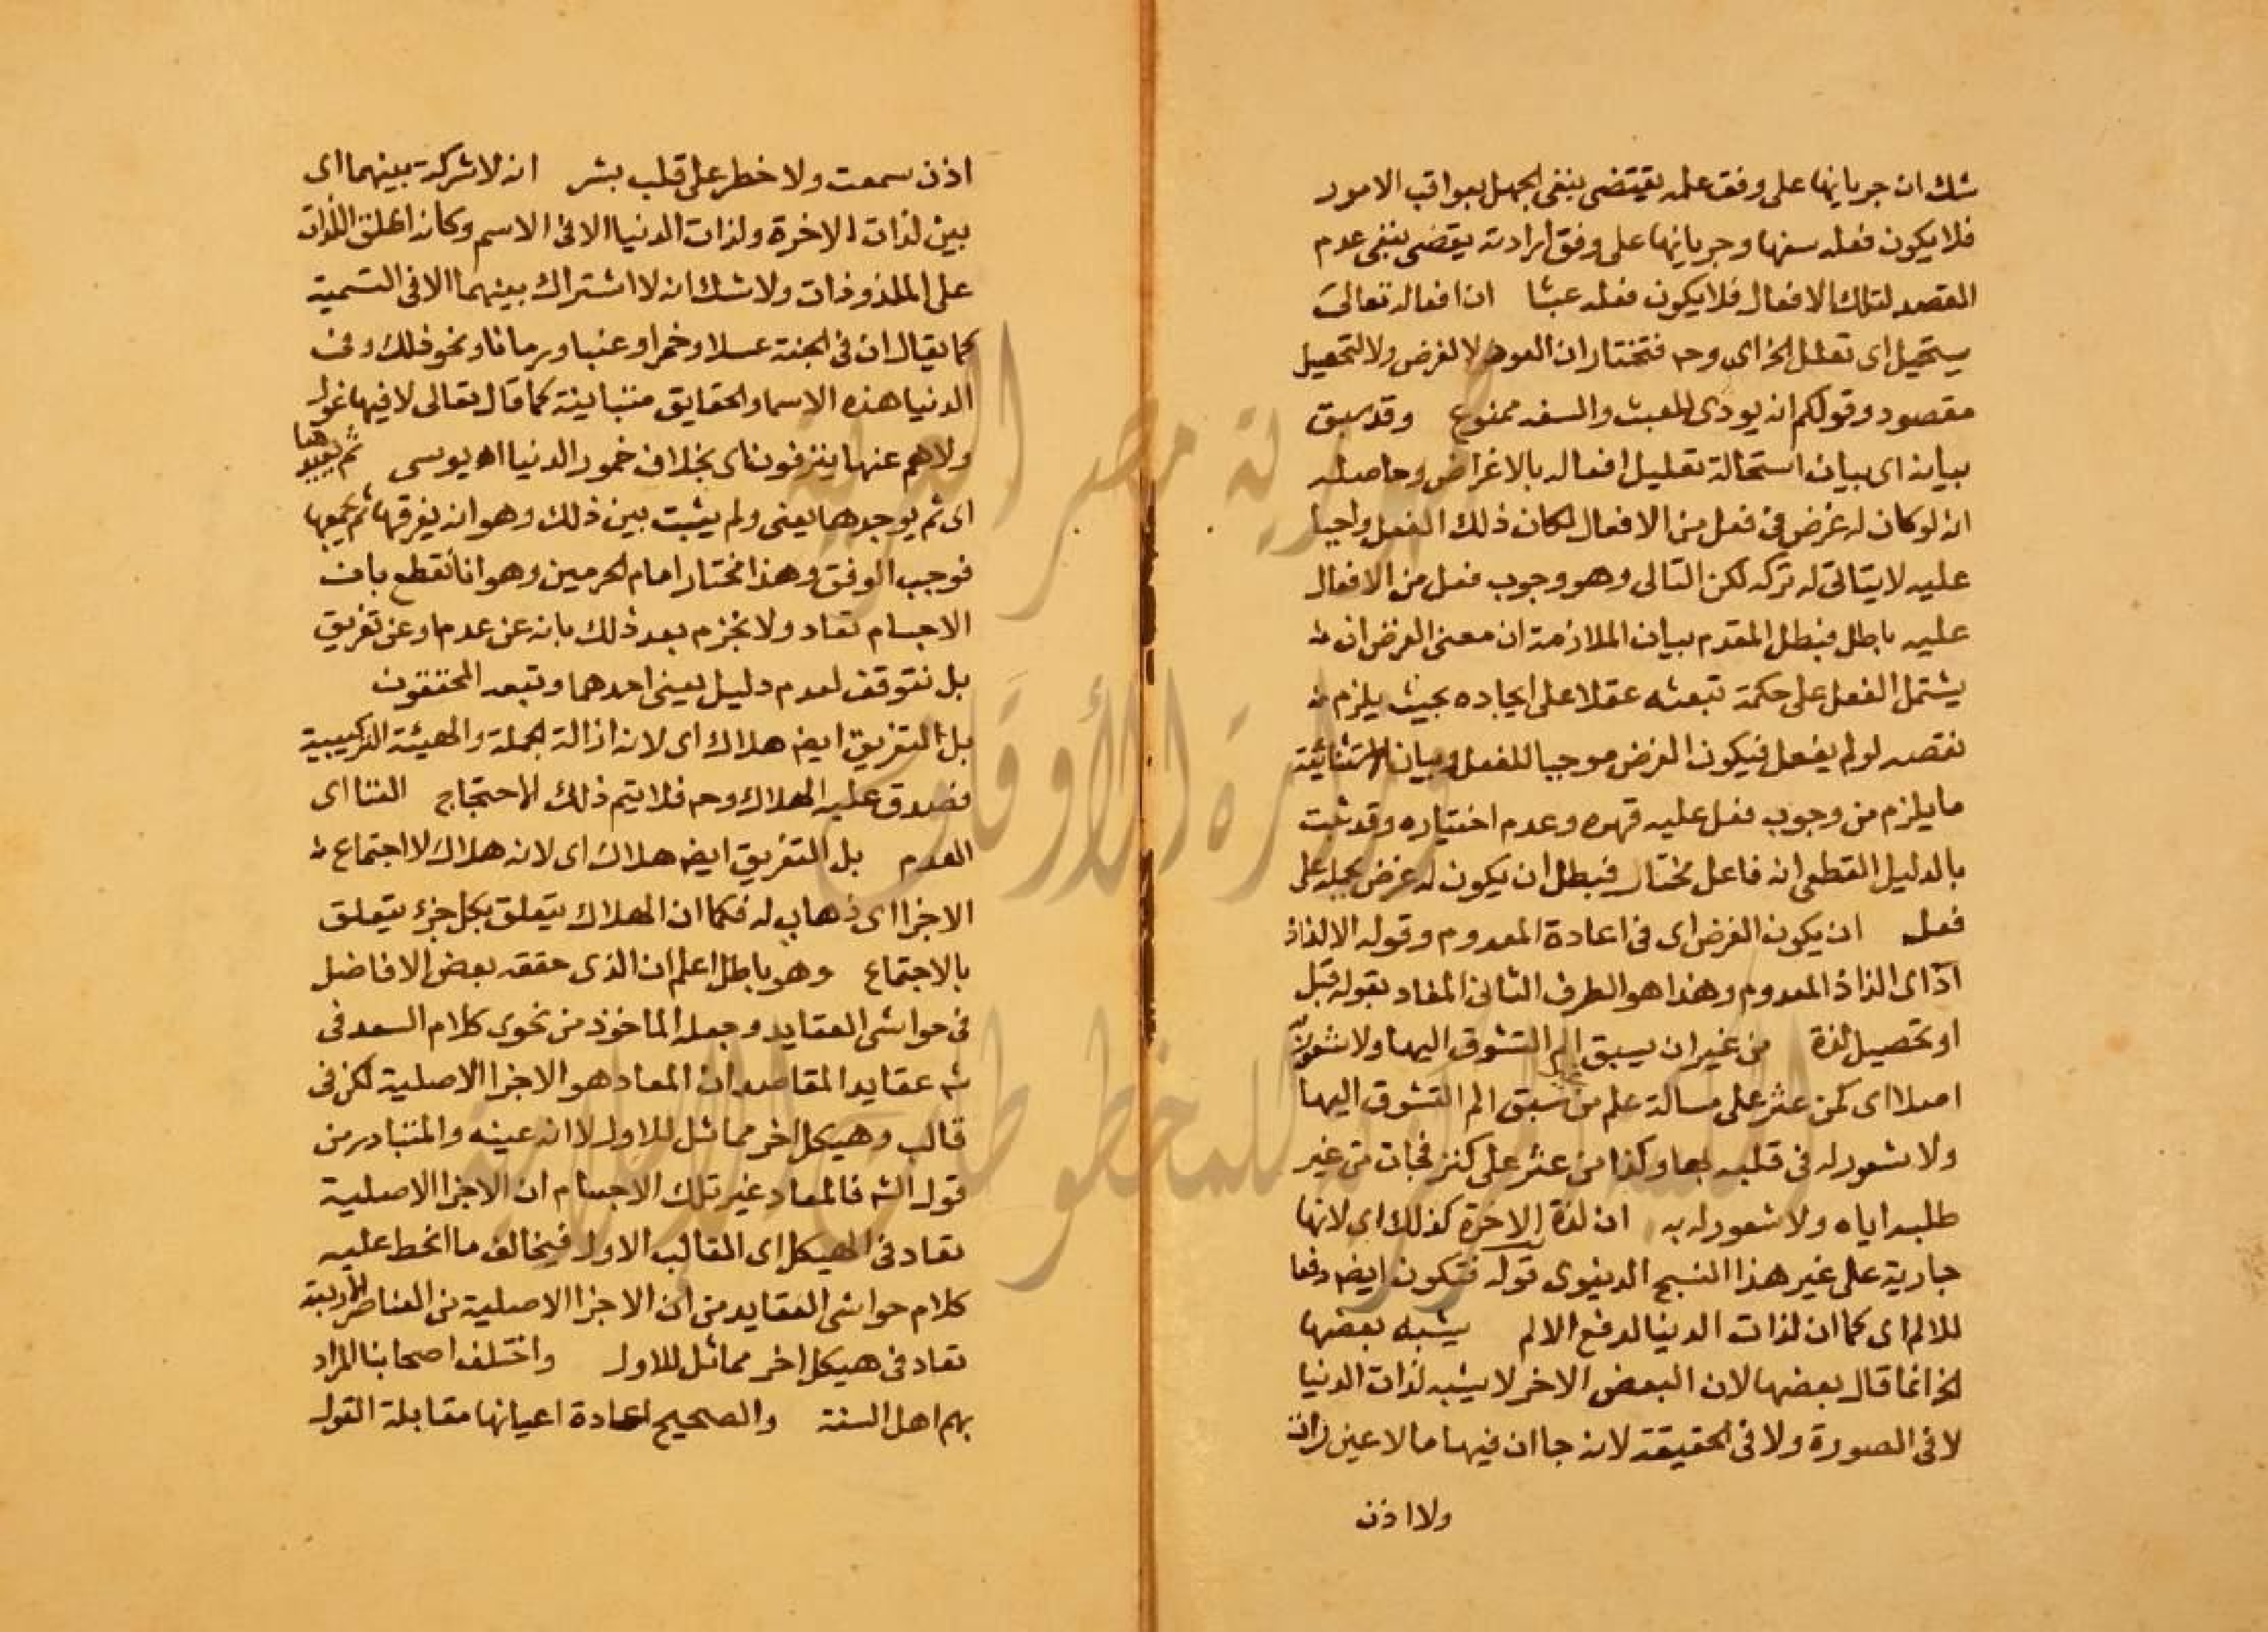 شك ان جريانها على وفق علمه يقتضى بنفى الجهل بعواقب الامور
فلا يكون فعله سفها وجريانها على وفق ارادته يقضى بنفى عدم
القصد لتلك الافعال فلا يكون فعله عبثا ان افعاله تعالى
يستحيل اى تعلل الخ اى وح فتختار ان العود لا لغرض ولا لتحصيل
مقصود وقولكم انه يودى للعبث والسفه ممنوع وقد سبق
بيانه اى بيان استحالة تعليل افعاله بالاغراض وحاصله
انه لو كان له غرض فى فعل من الافعال لكان ذلك الفعل واجبا
عليه لا يتاتى له تركه لكن التالى وهو وجوب فعل من الافعال
عليه باطل فبطل المقدم بيان الملازمة ان معنى الغرض ان
يشتمل الفعل على حكمة تبعثه عقلا على ايجاده بحيث يلزم
نقصه لو لم يفعل فيكون الغرض موجبا للفعل وبيان الاستثنائية
ما يلزم من وجوب فعل عليه قهره وعدم اختياره وقد ثبت
بالدليل القطعى انه فاعل مختار فبطل ان يكون له غرض يحمله على
فعل ان يكون الغرض اى فى اعادة المعدوم وقوله الالذاذ
اى الذاذ المعدوم وهذا هو الطرف الثانى المفاد بقوله قبل
او تحصيل لذة من غير ان يسبق الم التشوق اليها ولا شعور
اصلا اى كمن عثر على مسالة علم من سبق الم التشوق اليها
ولا شعور له فى قلبه بها وكذا من عثر على كنز فجات من غير
طلبه اياه ولا شعور له به ان لذة الاخرة كذلك اى لانها
جارية على غير هذا المنسج الدنيوى قوله فتكون ايضا دفعا
للالم اى كما ان لذات الدنيا لدفع الالم يشبه بعضها
الخ انما قال بعضها لان البعض الاخر لا يشبه لذات الدنيا
لا فى الصورة ولا فى الحقيقة لانه جا ان فيها ما لا عين رات
ولا اذن
اذن سمعت ولا خطر على قلب بشر انه لا شركة بينهما اى
بين لذات الاخرة ولذات الدنيا الا فى الاسم وكانه اطلق اللذات
على الملذوذات ولا شك انه لا اشتراك بينهما الا فى التسمية
كما يقال ان فى الجنة عسلا وخمرا وعنبا ورمانا ونحو ذلك وفى
الدنيا هذه الاسما والحقايق متباينة كما قال تعالى لا فيها غول
ولا هم عنها ينزفون اى بخلاف خمور الدنيا اه يوسى ثم يعيدها
اى ثم يوجدها يعنى ولم يثبت بين ذلك وهو انه يفرقها ثم يجمعها
فوجب الوقف وهذا مختار امام الحرمين وهو انا نقطع بان
الاجسام تعاد ولا نجزم بعد ذلك بانه عن عدم او عن تفريق
بل نتوقف لعدم دليل يعين احدهما وتبعه المحققون
بل التفريق ايضا هلاك اى لانه ازالة الجملة والهيئة التركيبية
فصدق عليه الهلاك وح فلا يتم ذلك الاحتجاج الفنا اى
العدم بل التفريق ايضا هلاك اى لانه هلاك لاجتماع
الاجزا اى ذهاب له فكما ان الهلاك يتعلق بكل جزء يتعلق
بالاجتماع وهو باطل اعلم ان الذى حققه بعض الافاضل
فى حواشى العقايد وجعله الماخوذ من نحوى كلام السعد فى
شه عقايد المقاصد ان المعاد هو الاجزا الاصلية لكن فى
قالب وهيكل اخر مماثل للاول لا انه عينه والمتبادر من
قول الشه فالمعاد غير تلك الاجسام ان الاجزا الاصلية
تعاد فى الهيكل اى القالب الاول فيخالف ما انحط عليه
كلام حواشى العقايد من ان الاجزا الاصلية من العناصر الاربعة
تعاد فى هيكل اخر مماثل للاول واختلف اصحابنا المراد
بهم اهل السنة والصحيح اعادة اعيانها مقابلة القول
جمهورية مصر العربية
وزارة الأوقاف
المكتبة المركزية للمخطوطات الإسلامية